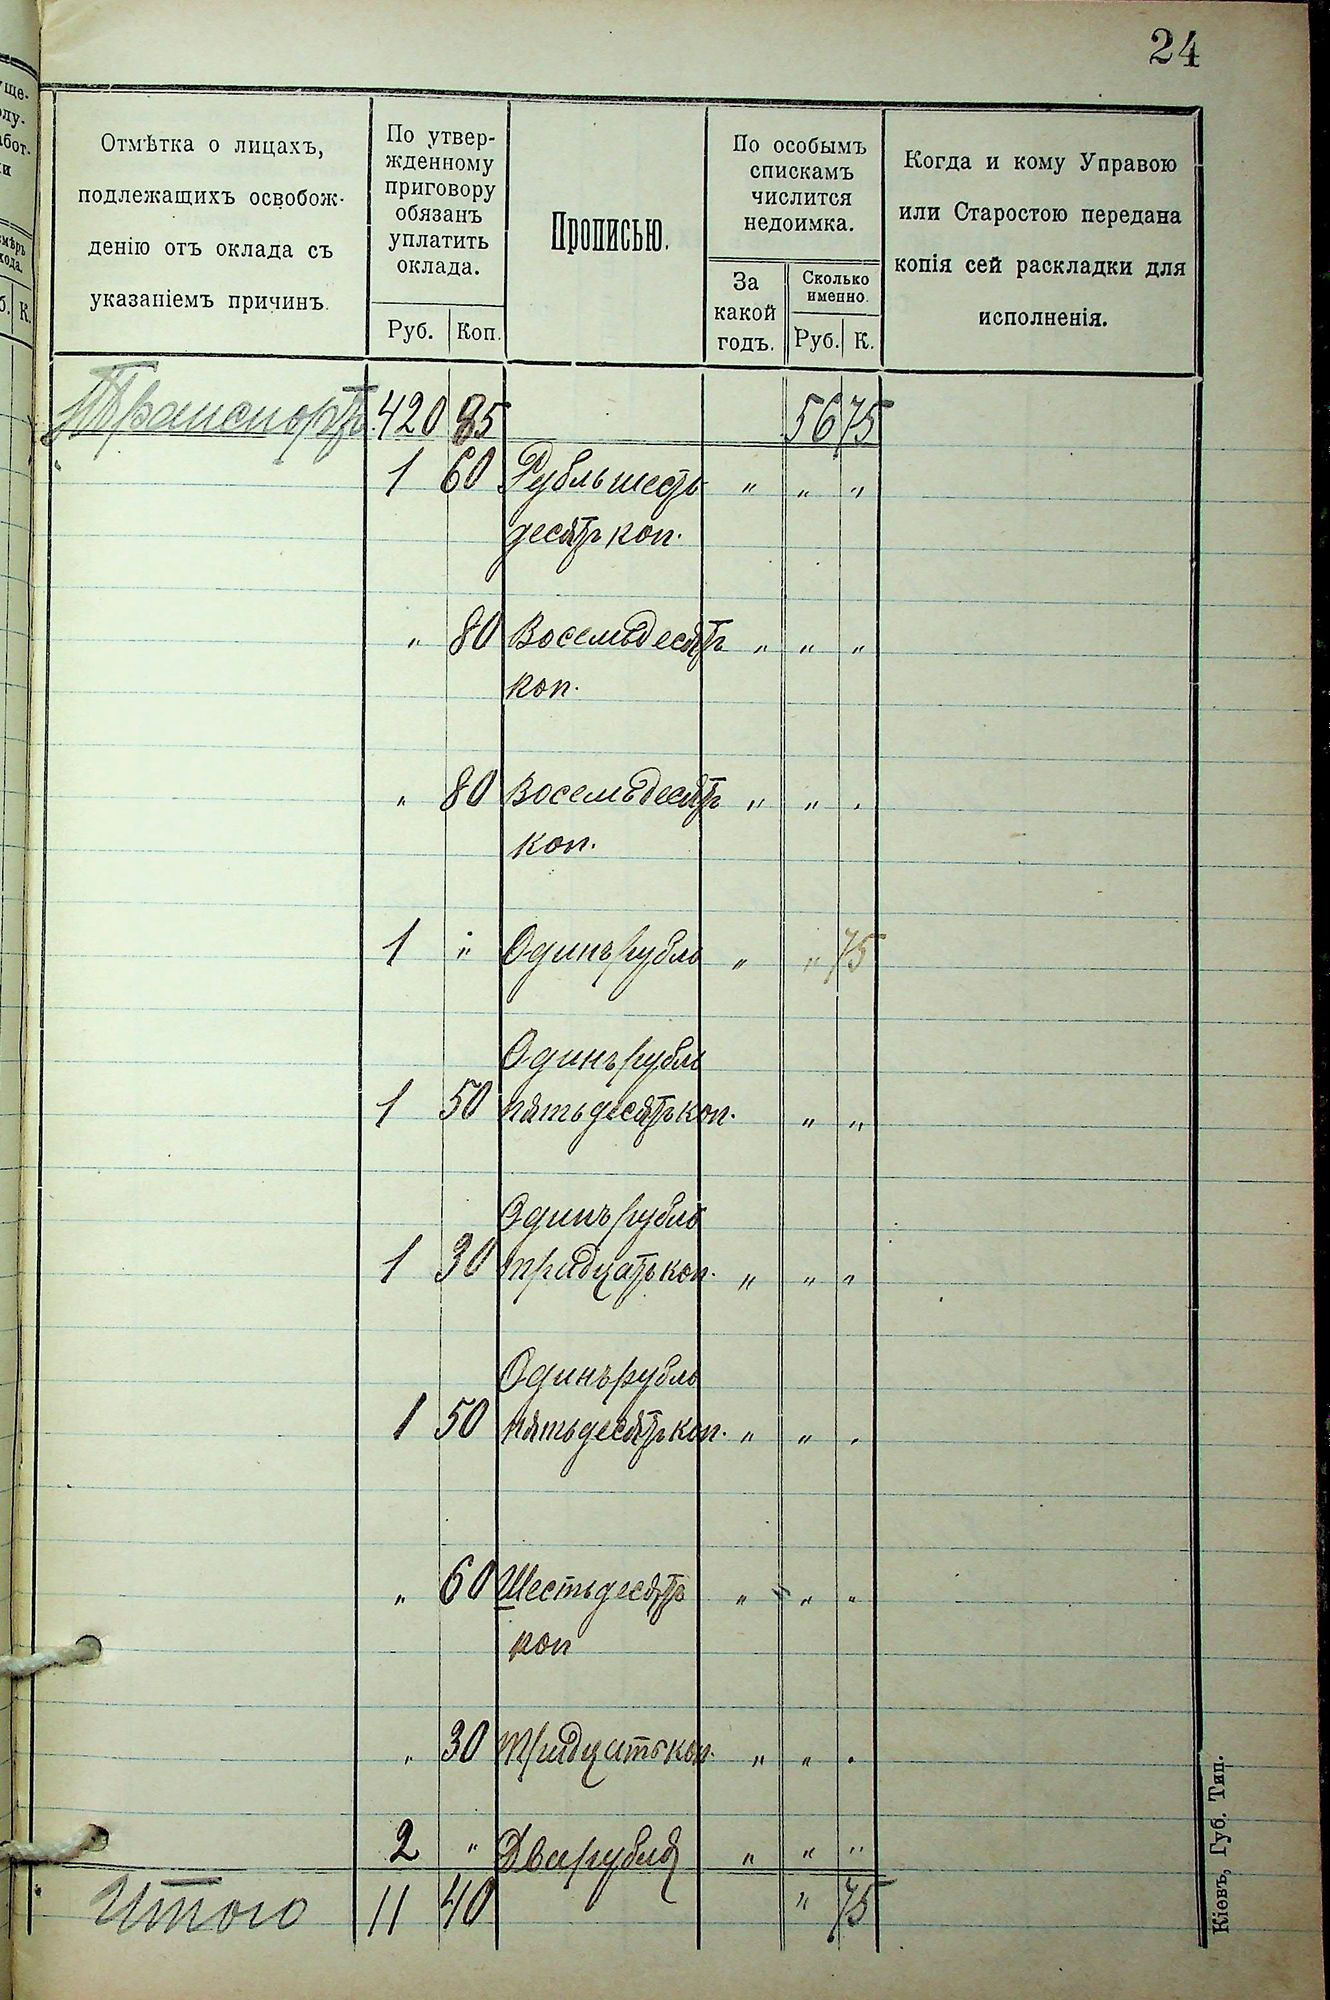 24
уще-
лу-
абот.
ки
змѣръ
хода.
б. К.
Отмѣтка о лицахъ,
подлежащихъ освобож-
денію отъ оклада съ
указаніемъ причинъ.
По утвер-
жденному
приговору
обязанъ
уплатить
оклада.
Руб. Коп.
Прописью.
По особымъ
спискамъ
числится
недоимка.
За
какой
годъ.
Сколько
именно.
Руб. К.
Когда и кому Управою
или Старостою передана
копія сей раскладки для
исполненія.
Транспортъ 420 85 56 75
1 60 Рубль шесть " " "
десятъ коп.
" 80 Восемьдесятъ " " "
коп.
" 80 Восемьдесятъ " " "
коп.
1 " Одинъ рубль " " 75
Одинъ рубль
1 50 пятьдесятъ коп. " "
Одинъ рубль
1 30 тридцать коп. " " "
Одинъ рубль
1 50 пятьдесятъ коп. " " "
" 60 Шестьдесятъ " " "
коп
" 30 тридцать коп. " " "
2 " Два рубля " " "
Итого 11 40 " 75
Кіевъ, Губ. Тип.